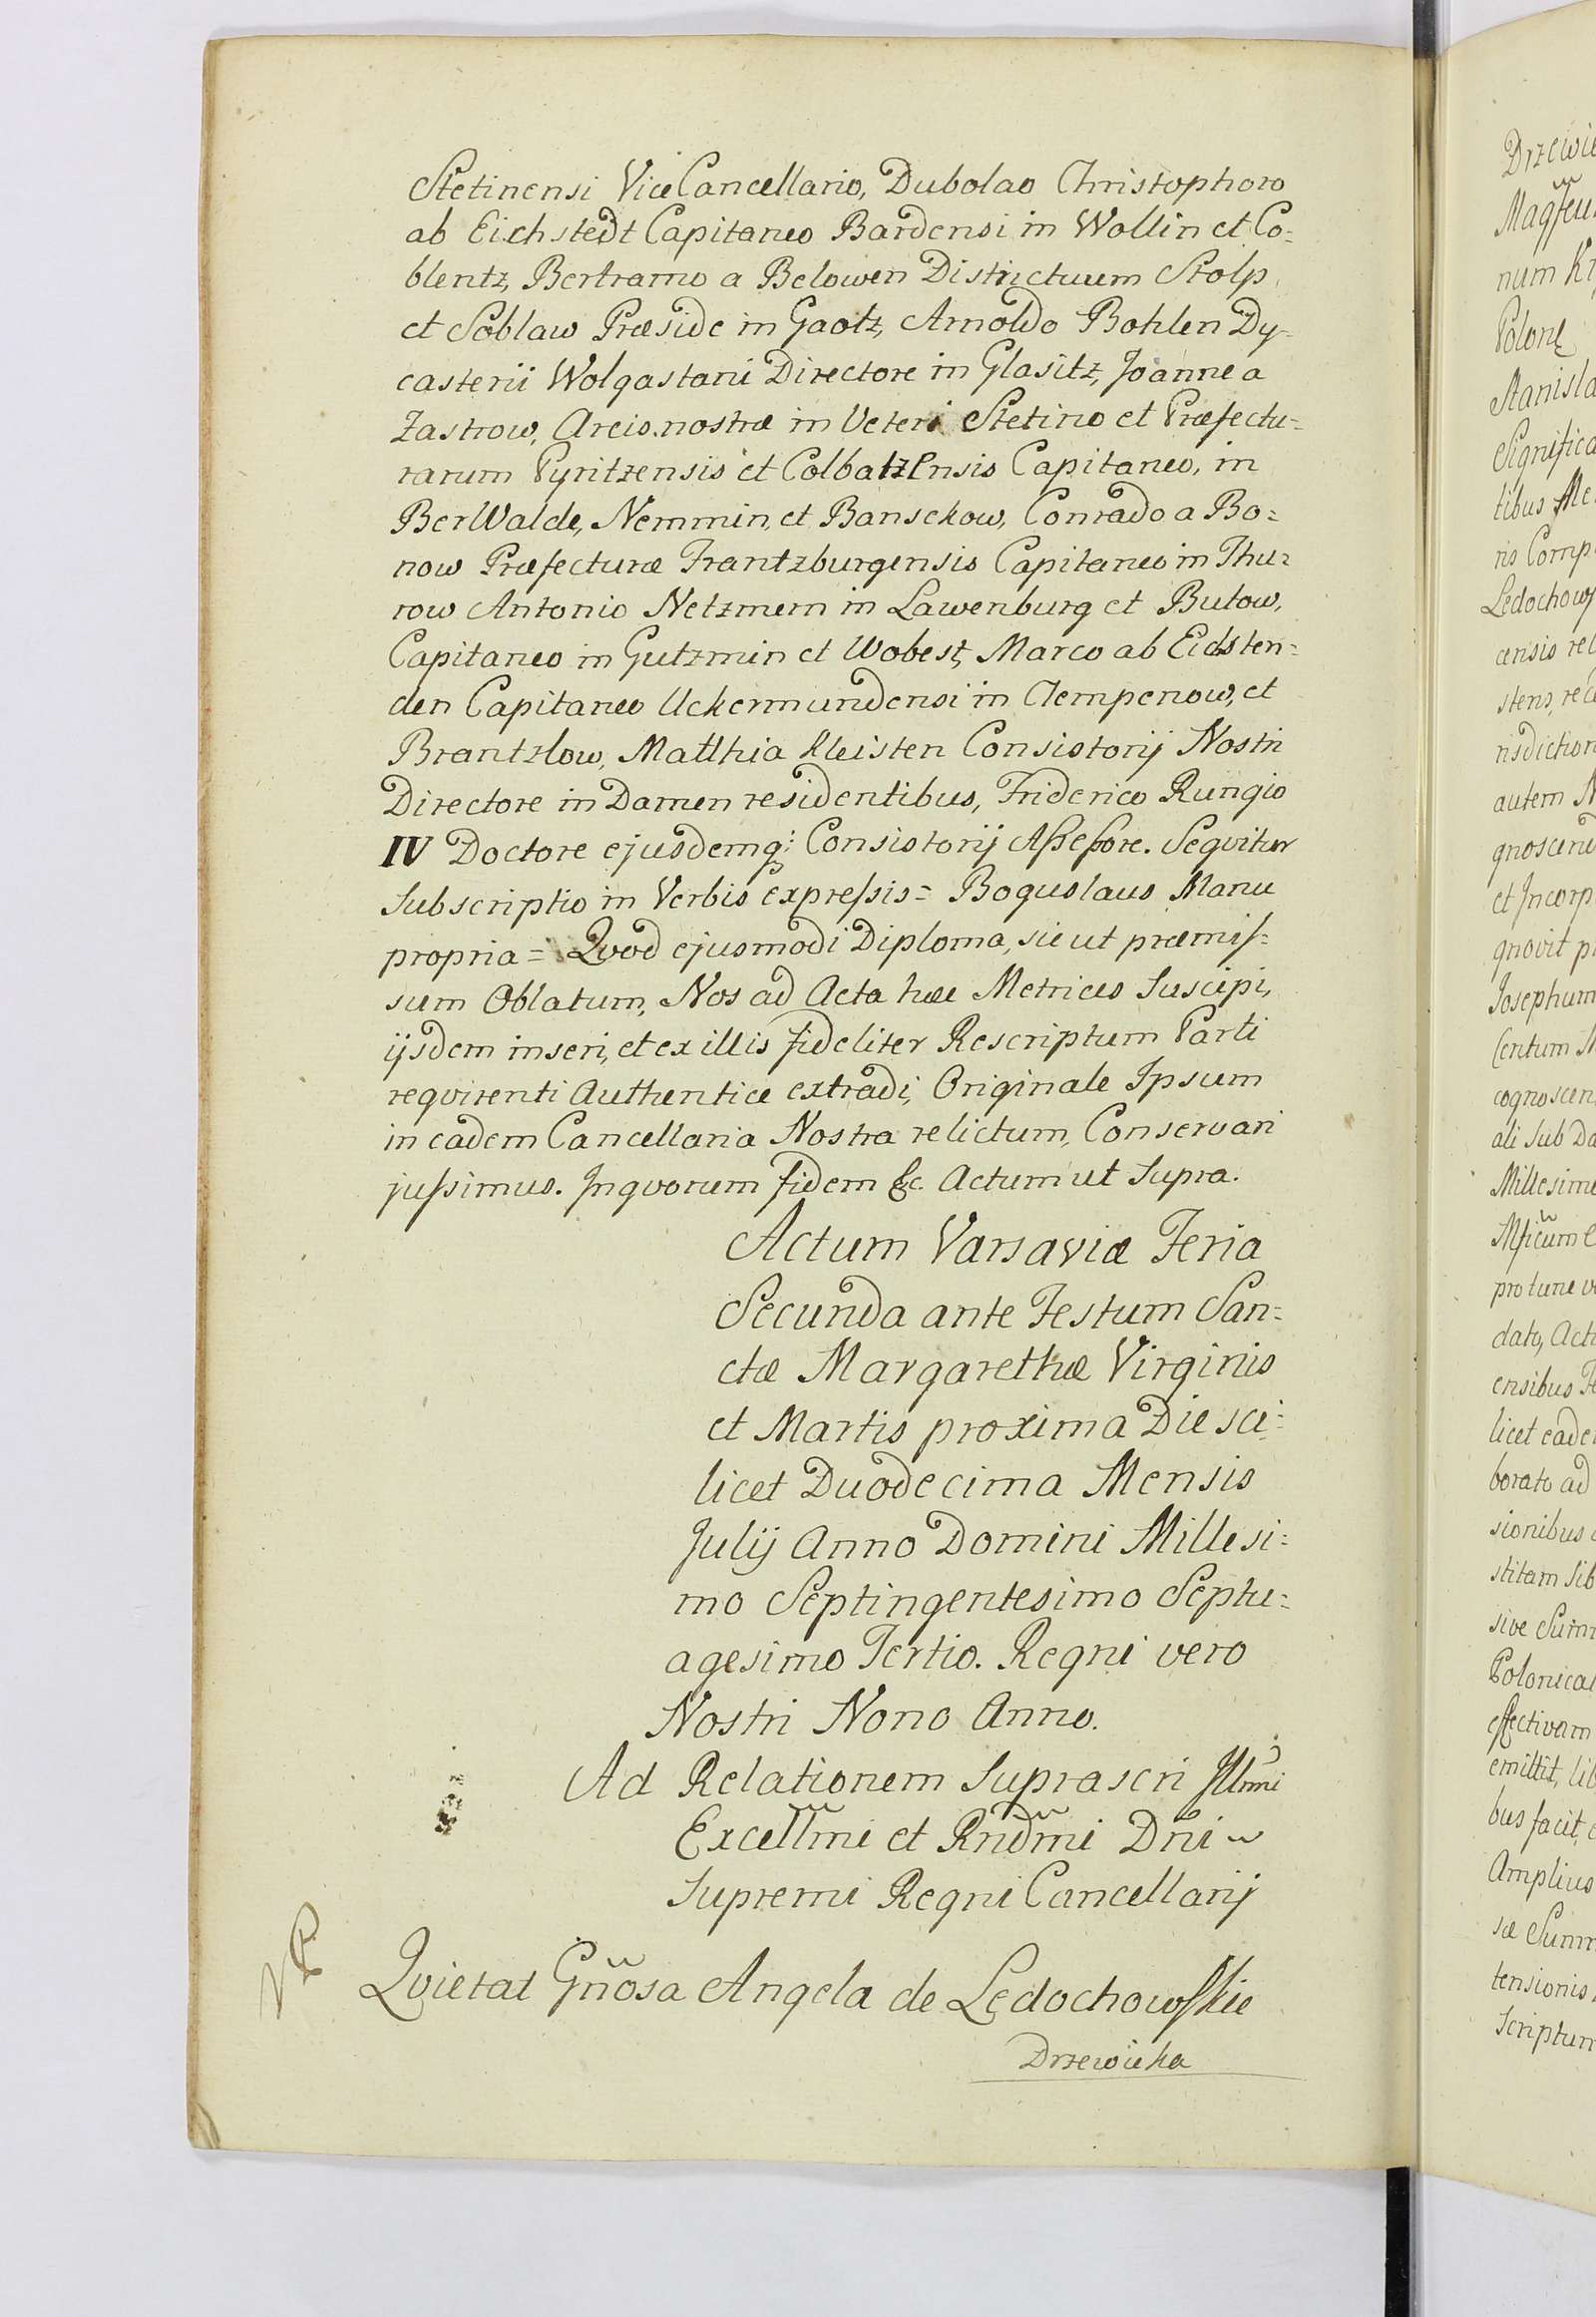 Stetinensi ViceCancellario, Dubolao Christophoro
ab Eichstedt Capitaneo Bardensi in Wollin et Co=
blentz, Bertramo a Belowen Districtuum Stolp,
et Soblaw Præside in Gaotz, Arnoldo Bohlen Dy=
casterii Wolgastani Directore in Glasitz, Joanne a
Zastrow, Arcis nostræ in Veteri Stetino et Præfectu=
rarum Pyritzensis et Colbatzensis Capitaneo, in
BerWalde, Nemmin, et Bansekow, Conrado a Bo=
now Præfecturæ Frantzburgensis Capitaneo in Thu=
row Antonio Netzmern in Lawenburg et Butow,
Capitaneo in Gutzmin et Wobest, Marco ab Eidsten=
den Capitaneo Uckermundensi in Clempenow, et
Brantzlow, Matthia Kleisten Consistorij Nostri
Directore in Damen residentibus, Friderico Rungio
IV Doctore ejusdemq: Consistorij Assessore. Seqvitur
Subscriptio in Verbis Expressis = Boguslaus Manu
propria = Qvod ejusmodi Diploma, sic ut præmis=
sum Oblatum, Nos ad Acta hæc Metrices Suscipi,
ijsdem inseri, et ex illis fideliter Rescriptum Parti
reqvirenti Authentice extradi, Originale Ipsum
in eadem Cancellaria Nostra relictum, Conservari
jussimus. Inqvorum fidem &c. Actum ut Supra.
Actum Varsaviæ Feria
Secunda ante Festum San=
ctæ Margarethæ Virginis
et Martis proxima Die sci=
licet Duodecima Mensis
Julij Anno Domini Millesi=
mo Septingentesimo Septu=
agesimo Tertio. Regni vero
Nostri Nono Anno.
Ad Relationem Suprascri Illmi
Excellmi et Rndmi Dni
Supremi Regni Cancellarij
Qvietat Gnosa Angela de Ledochowskie
Drzewicka
Drzewi
Magfeu
num
Polonę
Stanisla
Significa
tibus
ris Comp
Ledochows
censis rel
stens, rec
risdiction
autem N
gnoscend
et Incorp
gnovit p
Josephum
Centum
cognoscen
ali Sub Da
Millesimo
Mficum
pro tunc
dato, Act
ensibus Fe
licet eade
borato ad
sionibus
stitam Sib
sive Sum
Polonical
effectivam
emittit, lib
bus facit,
Amplius
sæ Summ
tensionis
Scriptum